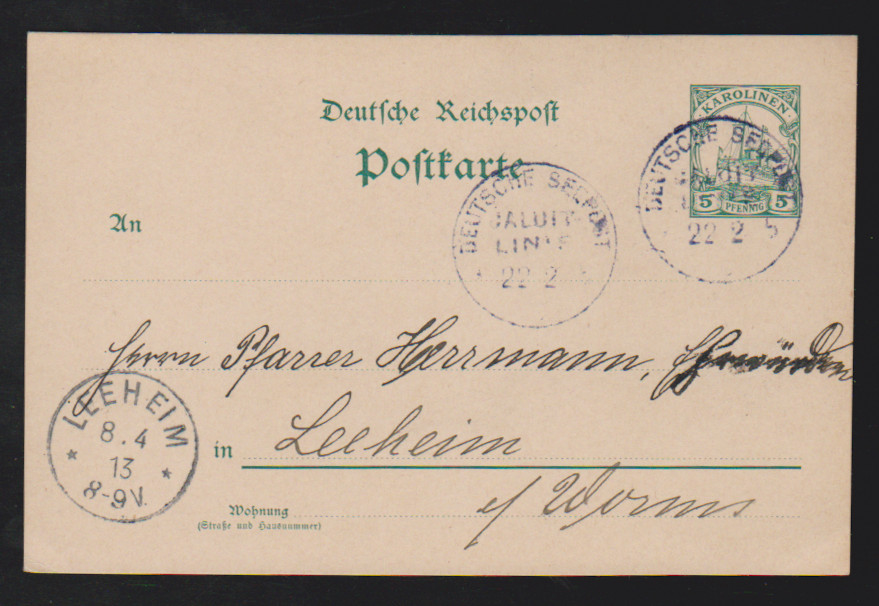 Deutsche Reichspost
Postkarte
KAROLINEN
5 PFENNIG 5
DEUTSCHE SEEPOST
JALUIT-
LINIE
22 2
DEUTSCHE SEEPOST
JALUIT-
LINIE
22 2 5
An
Herrn Pfarrer Herrmann, Ehrwürden
LEEHEIM
8.4
13
8-9V.
in Leeheim
Wohnung
(Straße und Hausnummer)
b/ Worms